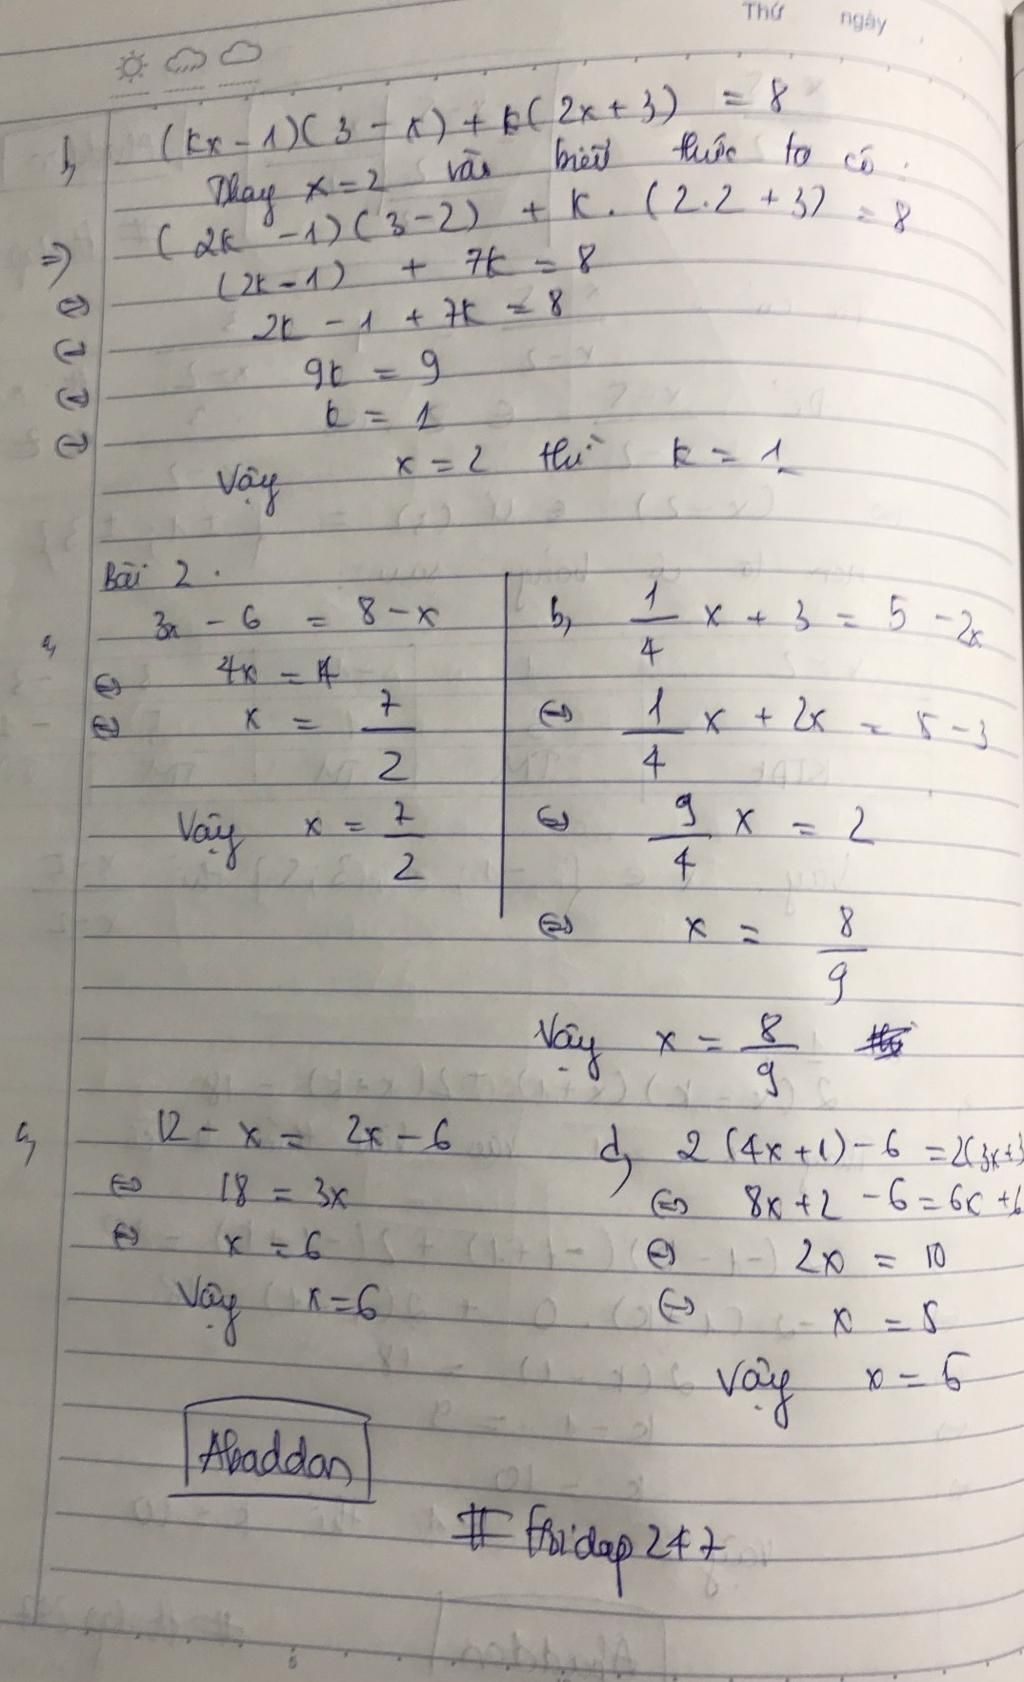 Thứ ngày
b, (kx - 1)(3 - x) + k(2x + 3) = 8
Thay x = 2 vào biểu thức ta có:
=> (2k - 1)(3 - 2) + k . (2.2 + 3) = 8
⇔ (2k - 1) + 7k = 8
⇔ 2k - 1 + 7k = 8
⇔ 9k = 9
⇔ k = 1
Vậy x = 2 thì k = 1
Bài 2.
a, 3x - 6 = 8 - x
⇔ 4x = 14
⇔ x = 7/2
Vậy x = 7/2
b, 1/4 x + 3 = 5 - 2x
⇔ 1/4 x + 2x = 5 - 3
⇔ 9/4 x = 2
⇔ x = 8/9
Vậy x = 8/9
c, 12 - x = 2x - 6
⇔ 18 = 3x
⇔ x = 6
Vậy x = 6
d, 2(4x + 1) - 6 = 2(3x + 3
⇔ 8x + 2 - 6 = 6x + 6
⇔ 2x = 10
⇔ x = 5
Vậy x = 5
Abaddon
# hoidap247